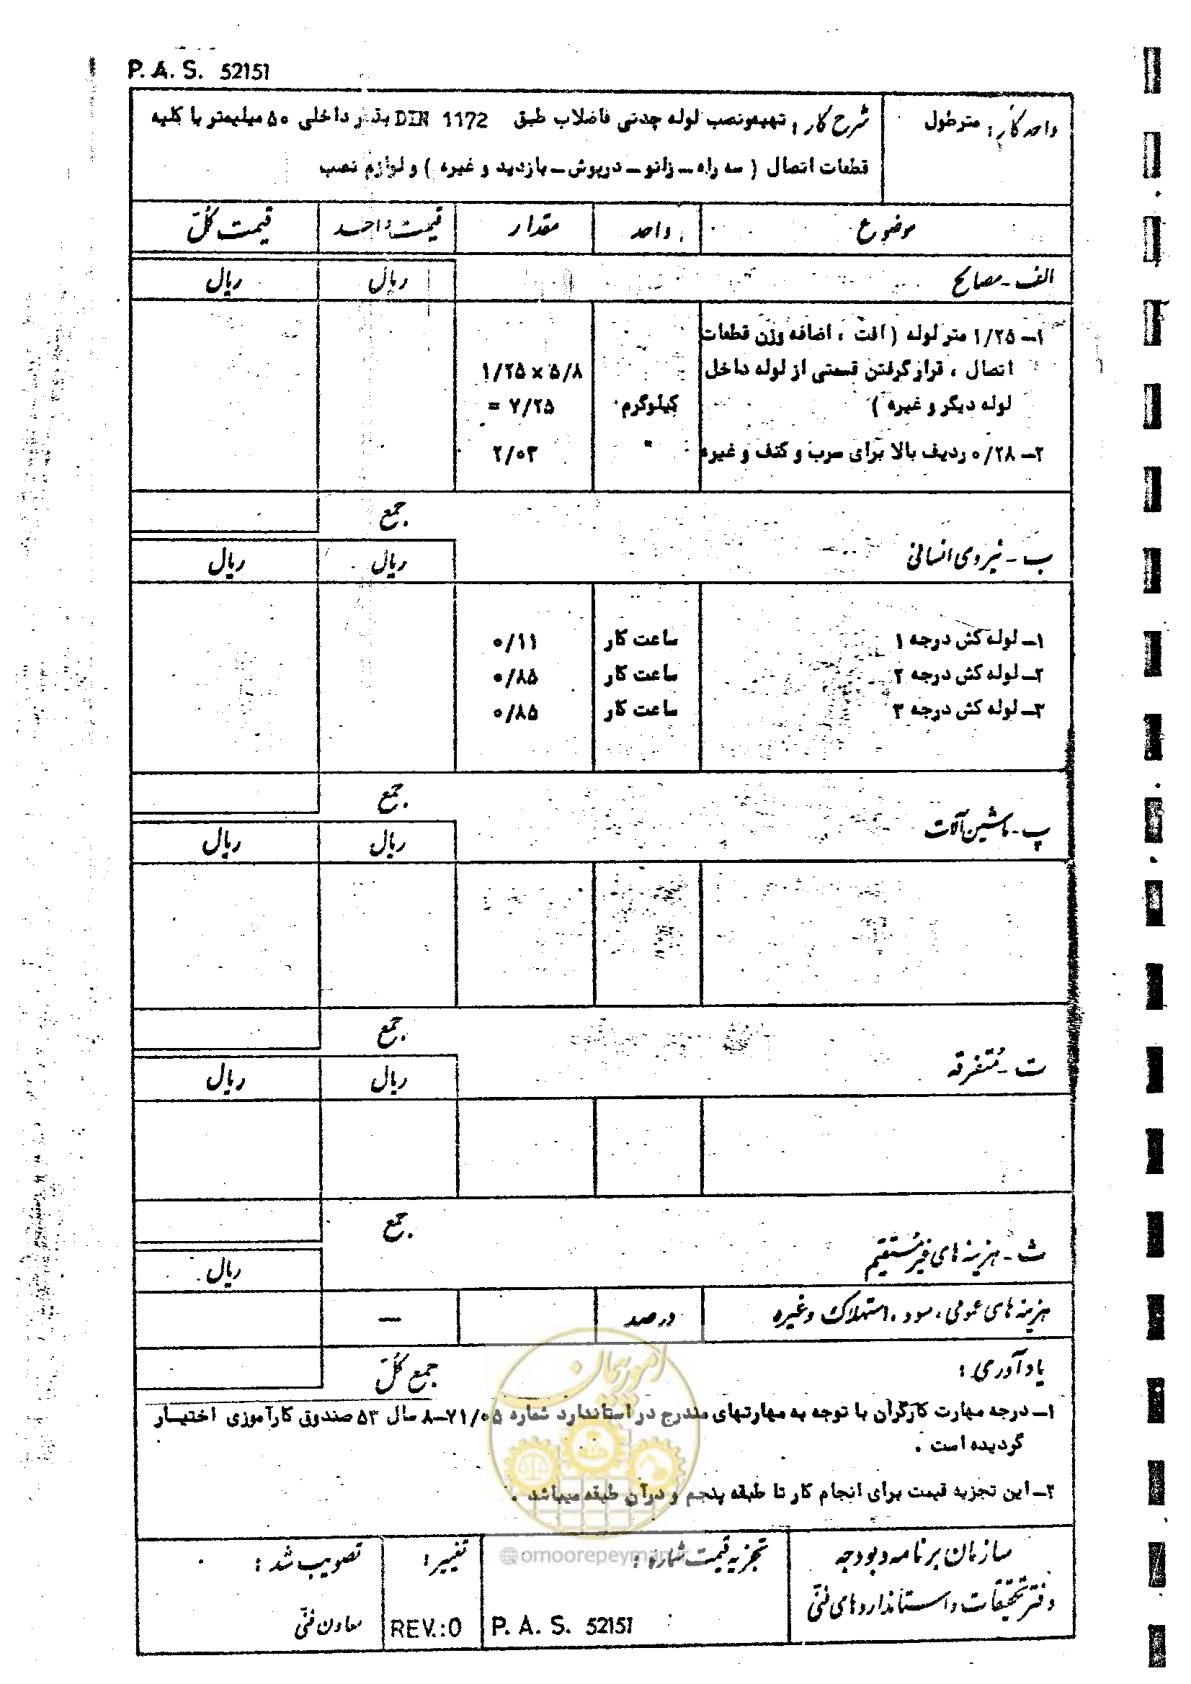 P. A. S. 52151
واحد کار : مترطول
شرح کار : تهیه‌ونصب لوله چدنی فاضلاب طبق DIN 1172 بقطر داخلی ۵۰ میلیمتر با کلیه
قطعات اتصال ( سه راه ــ زانو ــ درپوش ــ بازدید و غیره ) و لوازم نصب
موضوع واحد مقدار قیمت واحد قیمت کُلّ
الف - مصالح ریال ریال
۱ــ ۱/۲۵ متر لوله ( افت ، اضافه وزن قطعات
اتصال ، قرار گرفتن قسمتی از لوله داخل ۱/۲۵ x ۵/۸
لوله دیگر و غیره ) کیلوگرم = ۷/۲۵
۲ــ ۰/۲۸ ردیف بالا برای سرب و کنف و غیره " ۲/۰۳
جمع
ب - نیروی انسانی ریال ریال
۱ــ لوله کش درجه ۱ ساعت کار ۰/۱۱
۲ــ لوله کش درجه ۲ ساعت کار ۰/۸۵
۳ــ لوله کش درجه ۳ ساعت کار ۰/۸۵
جمع
پ - ماشین آلات ریال ریال
جمع
ت - مُتفرقه ریال ریال
جمع
ث - هزینه های غیرمُستقیم ریال
هزینه های عمومی ، سود ، استهلاک وغیره درصد —
یادآوری : جمع کُلّ
۱ــ درجه مهارت کارگران با توجه به مهارتهای مندرج در استاندارد شماره ۷۱/۰۵ــ۸ سال ۵۳ صندوق کارآموزی اختیـار
گردیده است .
۲ــ این تجزیه قیمت برای انجام کار تا طبقه پنجم و درآن طبقه میباشد .
امور پیمان
@omoorepeyman.ir
سازمان برنامه و بودجه
دفتر تحقیقات و استانداردهای فنّی
تجزیه قیمت شماره :
P. A. S. 52151
تغییر :
REV.:0
تصویب شد :
معاون فنّی